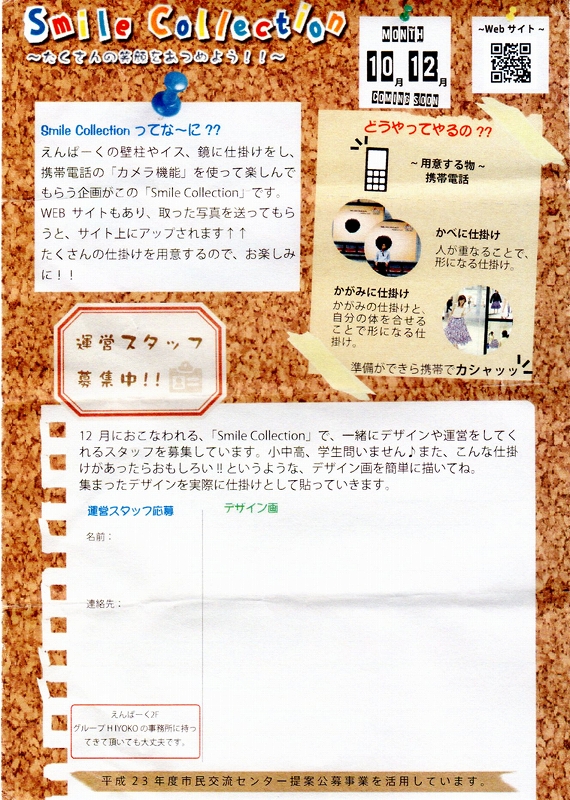 Smile Collection
～たくさんの笑顔をあつめよう！！～
MONTH
10月 12月
COMING SOON
～Web サイト～
Smile Collection ってな～に ??
えんぱーくの壁柱やイス、鏡に仕掛けをし、
携帯電話の「カメラ機能」を使って楽しんで
もらう企画がこの「Smile Collection」です。
WEB サイトもあり、取った写真を送ってもら
うと、サイト上にアップされます↑↑
たくさんの仕掛を用意するので、お楽しみ
に！！
どうやってやるの ??
～用意する物～
携帯電話
かべに仕掛け
人が重なることで、
形になる仕掛け。
かがみに仕掛け
かがみの仕掛けと、
自分の体を合せる
ことで形になる仕
掛け。
準備ができら携帯でカシャッッ
運営スタッフ
募集中!!
12 月におこなわれる、「Smile Collection」で、一緒にデザインや運営をしてく
れるスタッフを募集しています。小中高、学生問いません♪また、こんな仕掛
けがあったらおもしろい !! というような、デザイン画を簡単に描いてね。
集まったデザインを実際に仕掛けとして貼っていきます。
運営スタッフ応募
デザイン画
名前：
連絡先：
えんぱーく2F
グループ HIYOKO の事務所に持っ
てきて頂いても大丈夫です。
平成２３年度市民交流センター提案公募事業を活用しています。